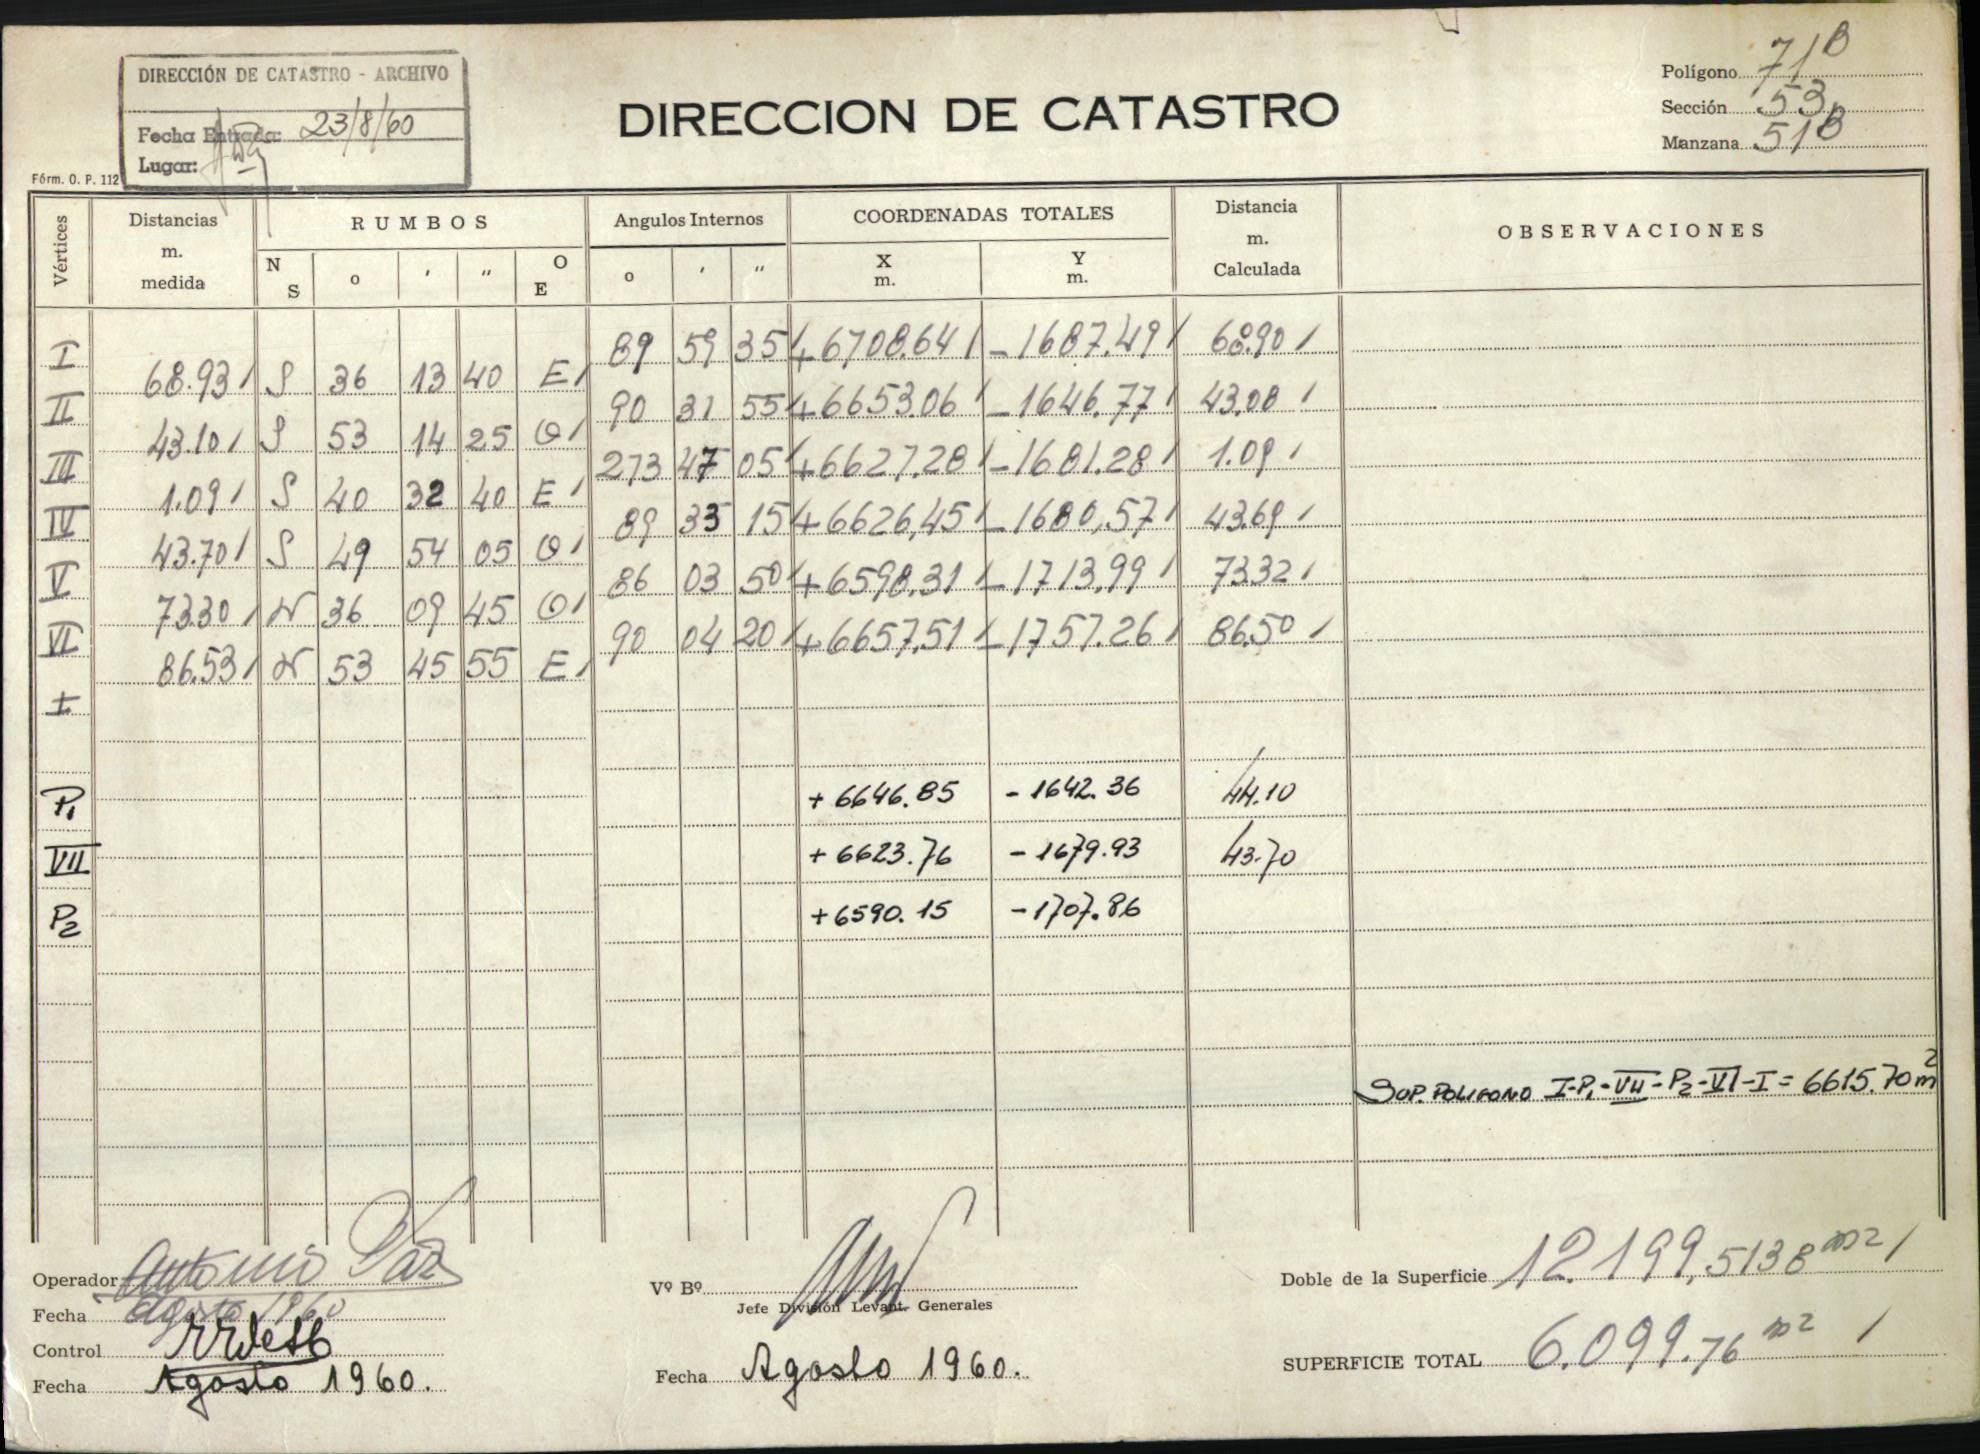 DIRECCIÓN DE CATASTRO - ARCHIVO
Fecha Entrada: 23/8/60
Lugar:
Fórm. O. P. 112
DIRECCION DE CATASTRO
Polígono 71B
Sección 53
Manzana 51B
Vértices Distancias m. medida RUMBOS Angulos Internos COORDENADAS TOTALES Distancia m. Calculada OBSERVACIONES
N S o ' " O E o ' " X m. Y m.
I 89 59 35 +6708.64 -1687.49 68.90
68.93 S 36 13 40 E
II 90 31 55 +6653.06 -1646.77 43.08
43.10 S 53 14 25 O
III 273 47 05 +6627.28 -1681.28 1.09
1.09 S 40 32 40 E
IV 89 33 15 +6626,45 -1680,57 43.69
43.70 S 49 54 05 O
V 86 03 50 +6598.31 -1713.99 73.32
73.30 N 36 09 45 O
VI 90 04 20 +6657.51 -1757.26 86.50
86.53 N 53 45 55 E
I
P1 +6646.85 -1642.36 44.10
VII +6623.76 -1679.93 43.70
P2 +6590.15 -1707.86
SUP. POLIGONO I-P1-VII-P2-VI-I = 6615.70 m2
Operador Antonio Paz
Fecha Agosto 1960
Control
Fecha Agosto 1960.
Vº Bº
Jefe División Levant. Generales
Fecha Agosto 1960.
Doble de la Superficie 12.199,5138 m2
SUPERFICIE TOTAL 6.099.76 m2